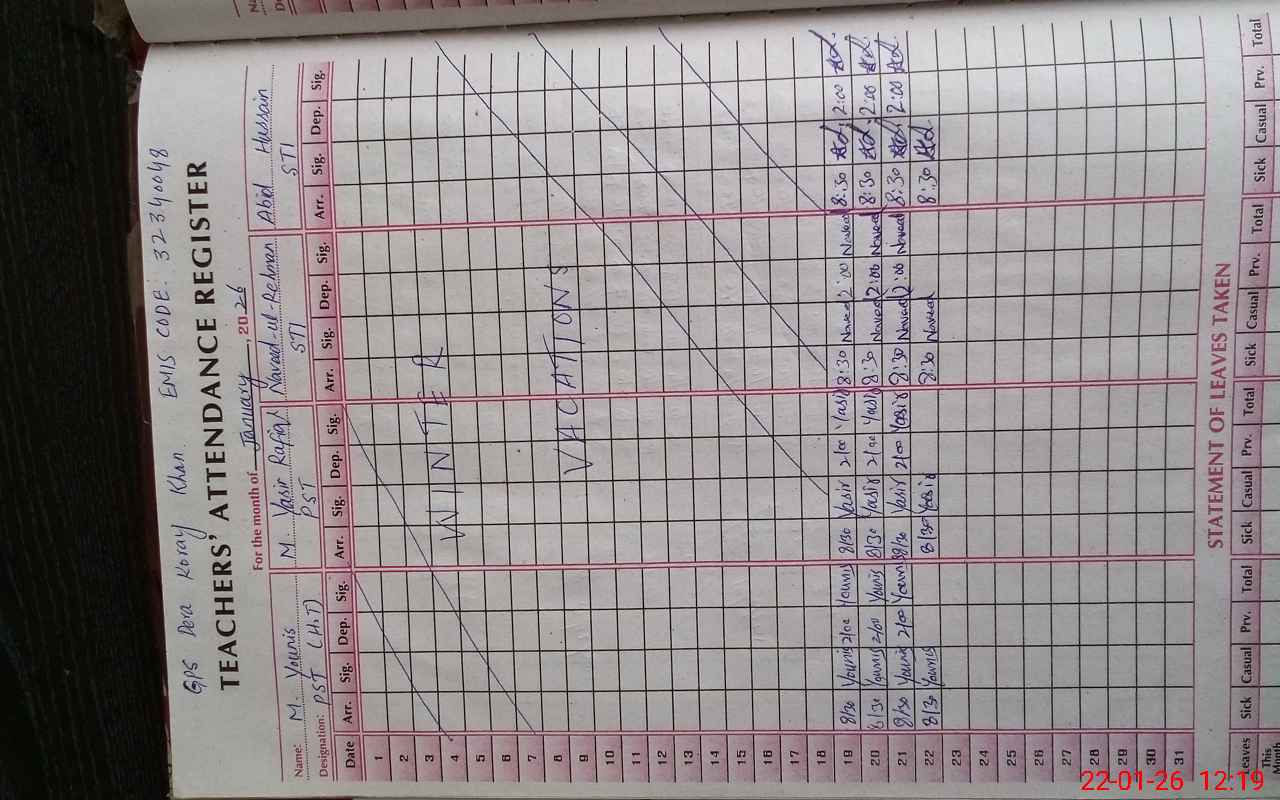 GPS Dera Koray Khan EMIS CODE: 32340048
TEACHERS' ATTENDANCE REGISTER
For the month of January, 2026
Name: M. Younis M. Yasir Rafiq Naveed-ul-Rehman Abid Hussain
Designation: PST (H.T) PST STI STI
Date Arr. Sig. Dep. Sig. Arr. Sig. Dep. Sig. Arr. Sig. Dep. Sig. Arr. Sig. Dep. Sig.
1
2
3
4 WINTER
5
6
7
8 VACATIONS
9
10
11
12
13
14
15
16
17
18
19 8/30 Younis 2/00 Younis 8/30 Yasir 2/00 Yasir 8:30 Naveed 2:00 Naveed 8:30 2:00
20 8/30 Younis 2/00 Younis 8/30 Yasir 2/00 Yasir 8:30 Naveed 2:00 Naveed 8:30 2:00
21 8/30 Younis 2/00 Younis 8/30 Yasir 2/00 Yasir 8:30 Naveed 2:00 Naveed 8:30 2:00
22 8/30 Younis 8/30 Yasir 8:30 Naveed 8:30
23
24
25
26
27
28
29
30
31
STATEMENT OF LEAVES TAKEN
Leaves Sick Casual Prv. Total Sick Casual Prv. Total Sick Casual Prv. Total Sick Casual Prv. Total
This Month
22-01-26 12:19